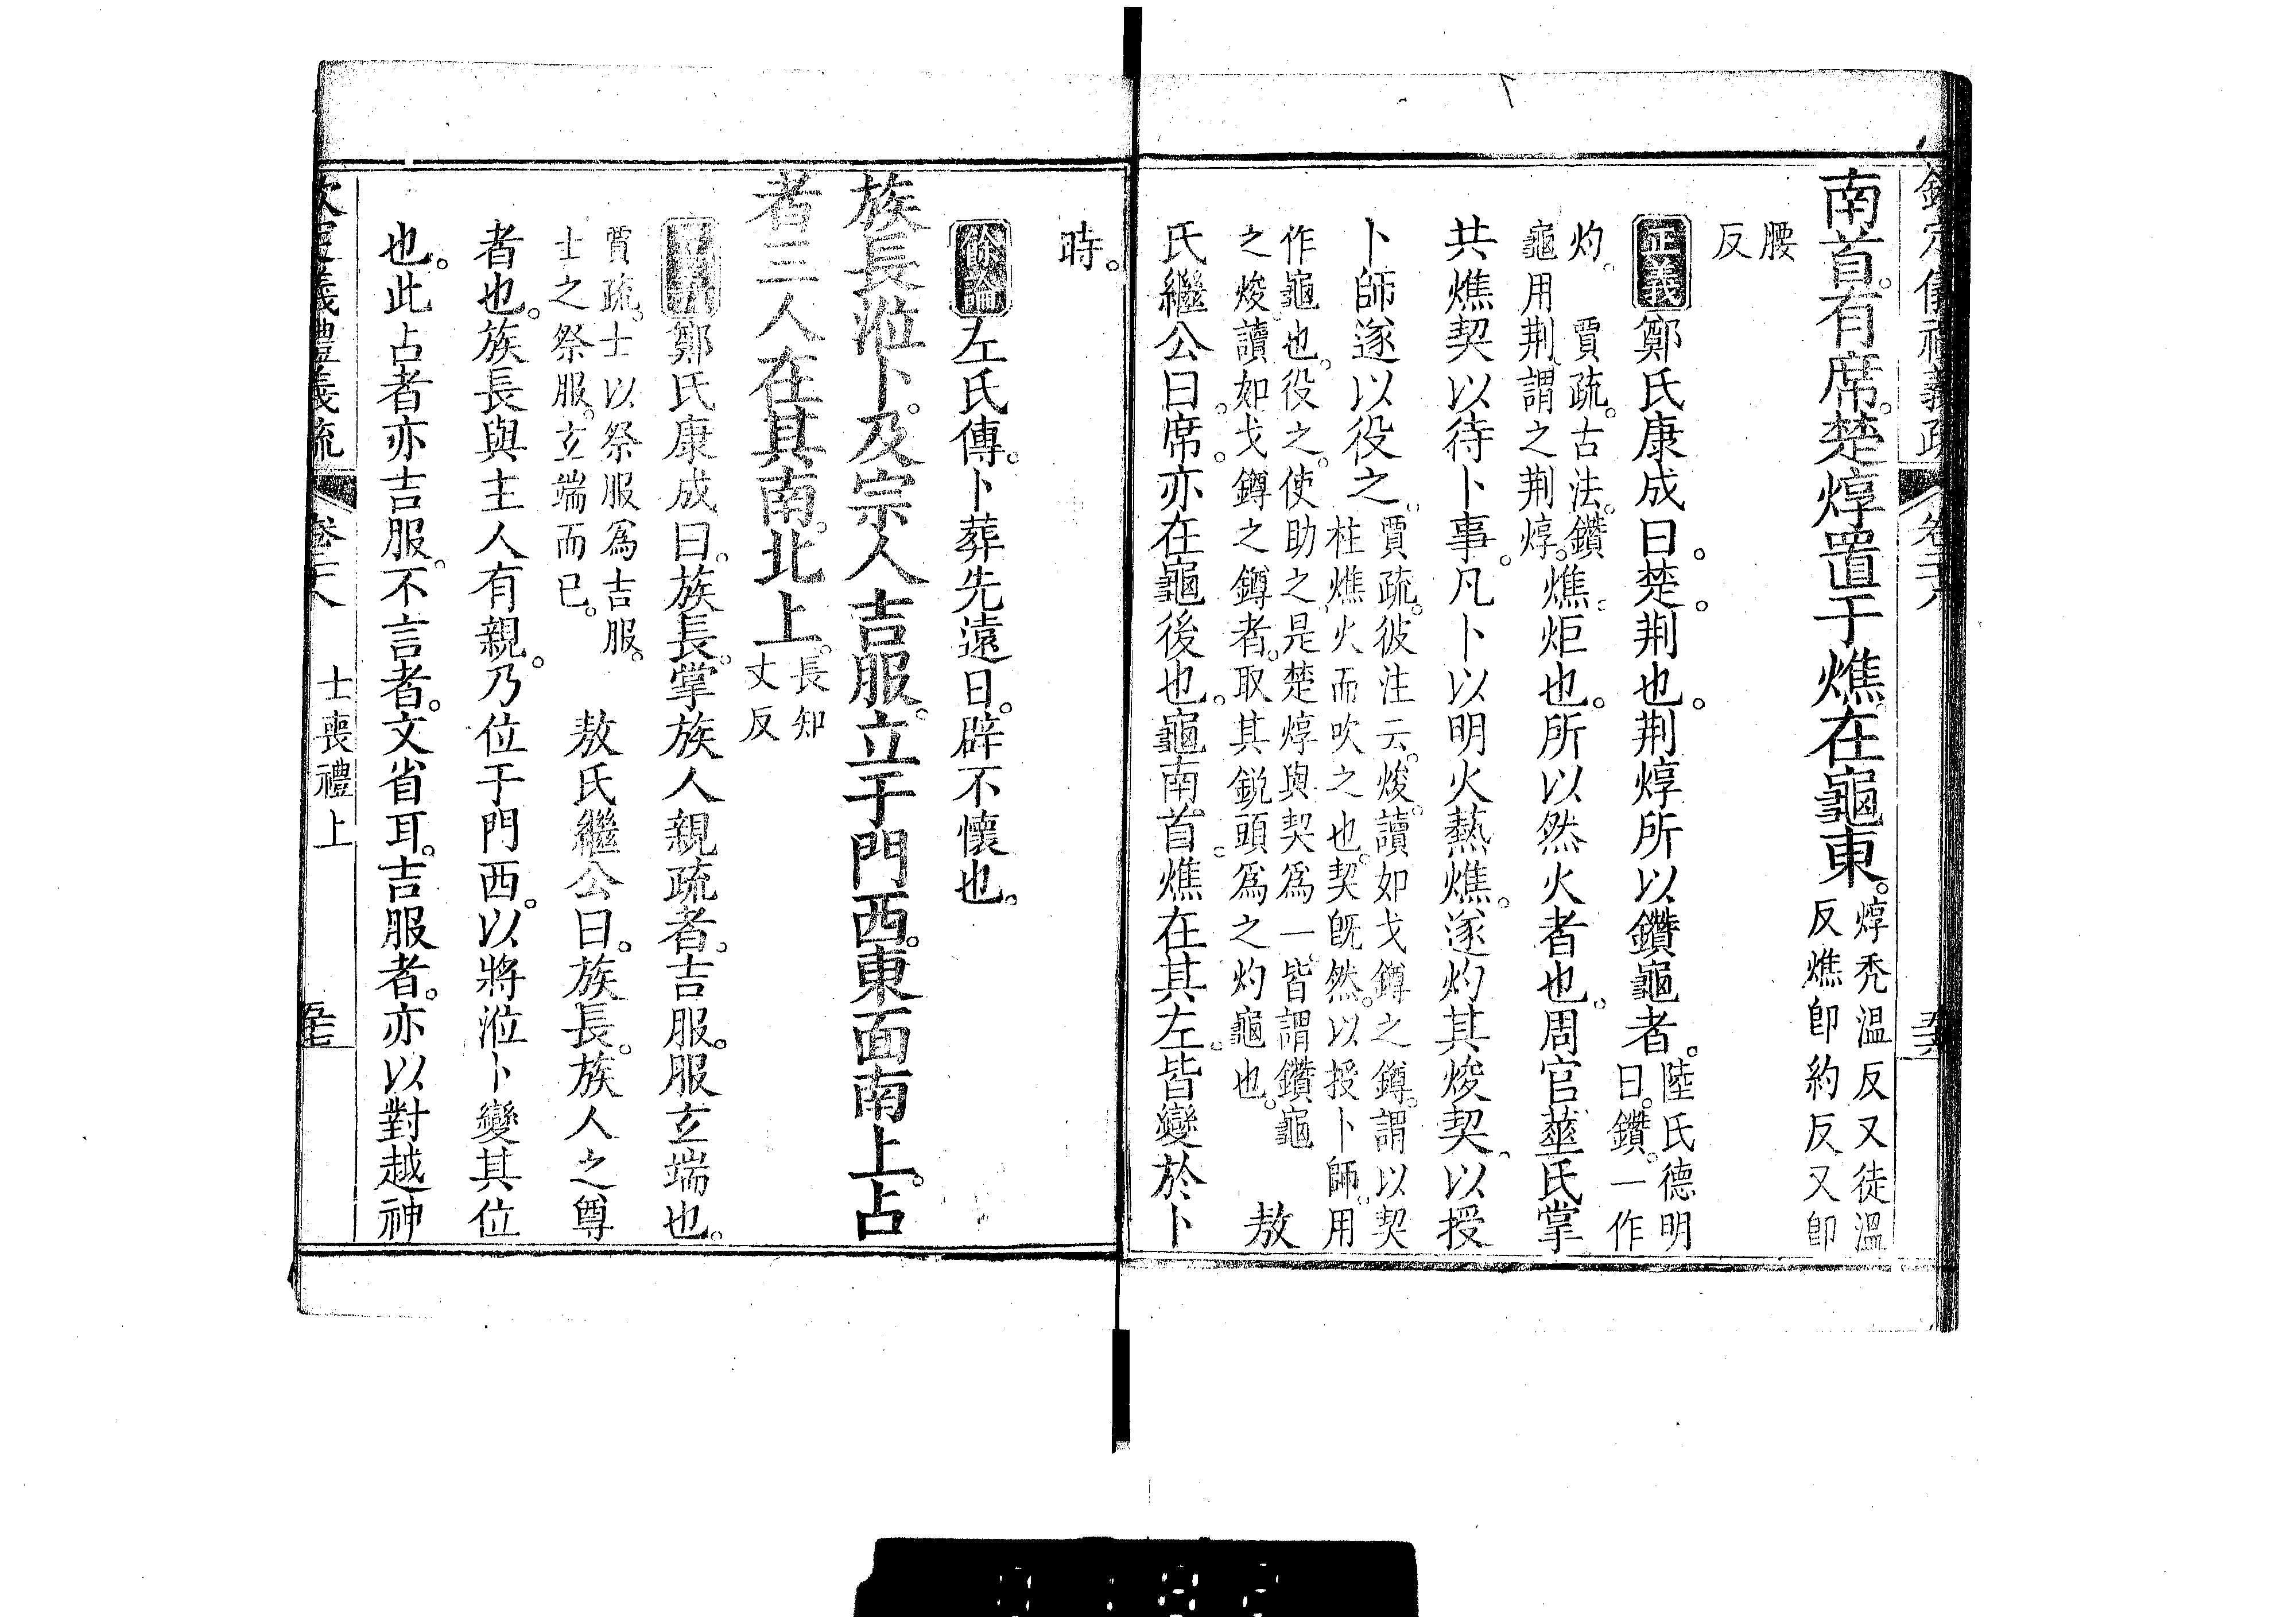 欽定儀禮義疏 卷二十八 五十六
南首。有席。楚焞置于燋。在龜東。焞禿溫反又徒溫
反燋卽約反又卽
腰
反
正義鄭氏康成曰。楚。荆也。荆焞所以鑽龜者。陸氏德明
曰。鑽。一作
灼。 賈疏。古法。鑽
龜用荆。謂之荆焞。燋。炬也。所以然火者也。周官菙氏掌
共燋契以待卜事。凡卜以明火爇燋。遂灼其焌契。以授
卜師遂以役之。賈疏。彼注云。焌。讀如戈鐏之鐏。謂以契
柱燋火而吹之也。契旣然。以授卜師。用
作龜也。役之。使助之。是楚焞與契爲一。皆謂鑽龜
之焌。讀如戈鐏之鐏者。取其銳頭爲之灼龜也。 敖
氏繼公曰。席。亦在龜後也。龜南首。燋在其左。皆變於卜
時。
餘論左氏傳。卜葬先遠日。辟不懷也。
族長涖卜。及宗人吉服。立于門西。東面南上。占
者三人在其南。北上。長知
丈反
正義鄭氏康成曰。族長。掌族人親疏者。吉服。服玄端也。
賈疏。士以祭服爲吉服。
士之祭服。玄端而已。 敖氏繼公曰。族長。族人之尊
者也。族長與主人有親。乃位于門西。以將涖卜變其位
也。此占者亦吉服。不言者。文省耳。吉服者。亦以對越神
欽定儀禮義疏 卷二十八 士喪禮上 五十七